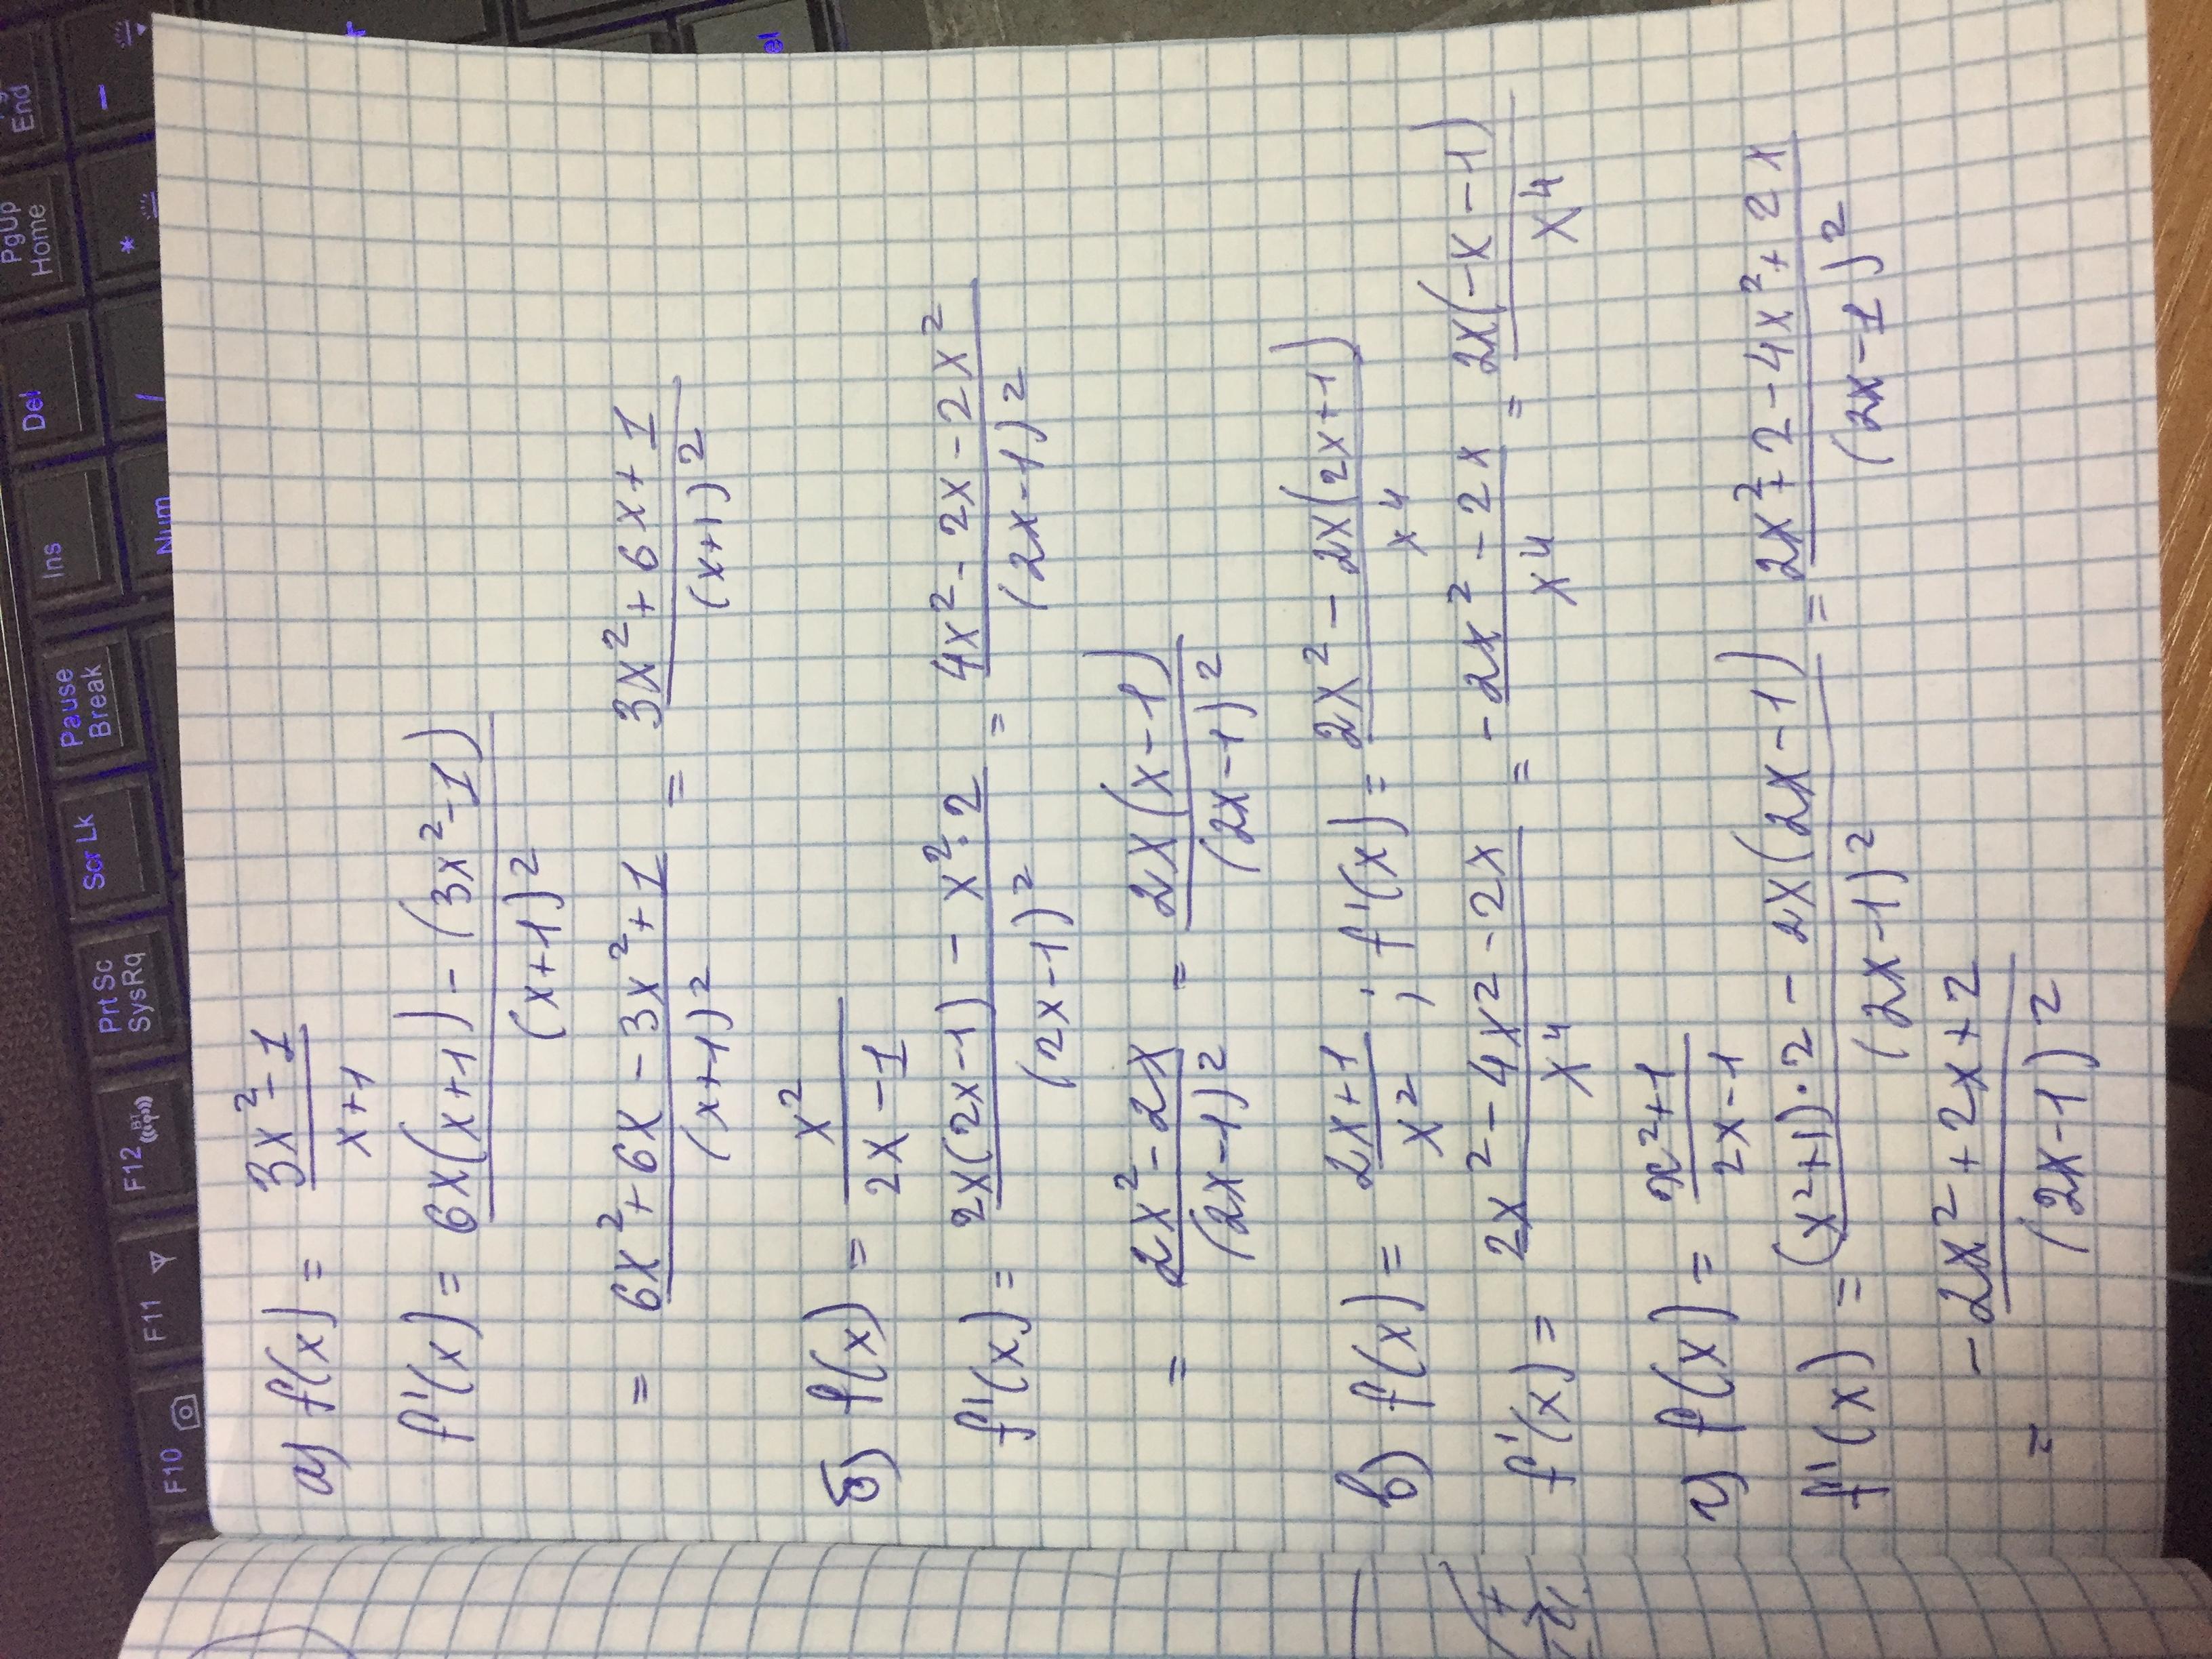 End
PgUp
Home
Del
Ins
Pause
Break
Scr Lk
PrtSc
SysRq
F12
F11
F10
—
*
/
Num
а) f(x) = (3x² - 1)/(x+1)
f'(x) = (6x(x+1) - (3x² - 1))/(x+1)²
= (6x² + 6x - 3x² + 1)/(x+1)² = (3x² + 6x + 1)/(x+1)²
б) f(x) = x²/(2x - 1)
f'(x) = (2x(2x-1) - x²·2)/(2x-1)² = (4x² - 2x - 2x²)/(2x-1)²
= (2x² - 2x)/(2x-1)² = (2x(x-1))/(2x-1)²
в) f(x) = (2x+1)/x² ; f'(x) = (2x² - 2x(2x+1))/x⁴
f'(x) = (2x² - 4x² - 2x)/x⁴ = (-2x² - 2x)/x⁴ = (2x(-x-1))/x⁴
г) f(x) = (x²+1)/(2x-1)
f'(x) = ((x²+1)·2 - 2x(2x-1))/(2x-1)² = (2x² + 2 - 4x² + 2x)/(2x-1)²
= (-2x² + 2x + 2)/(2x-1)²